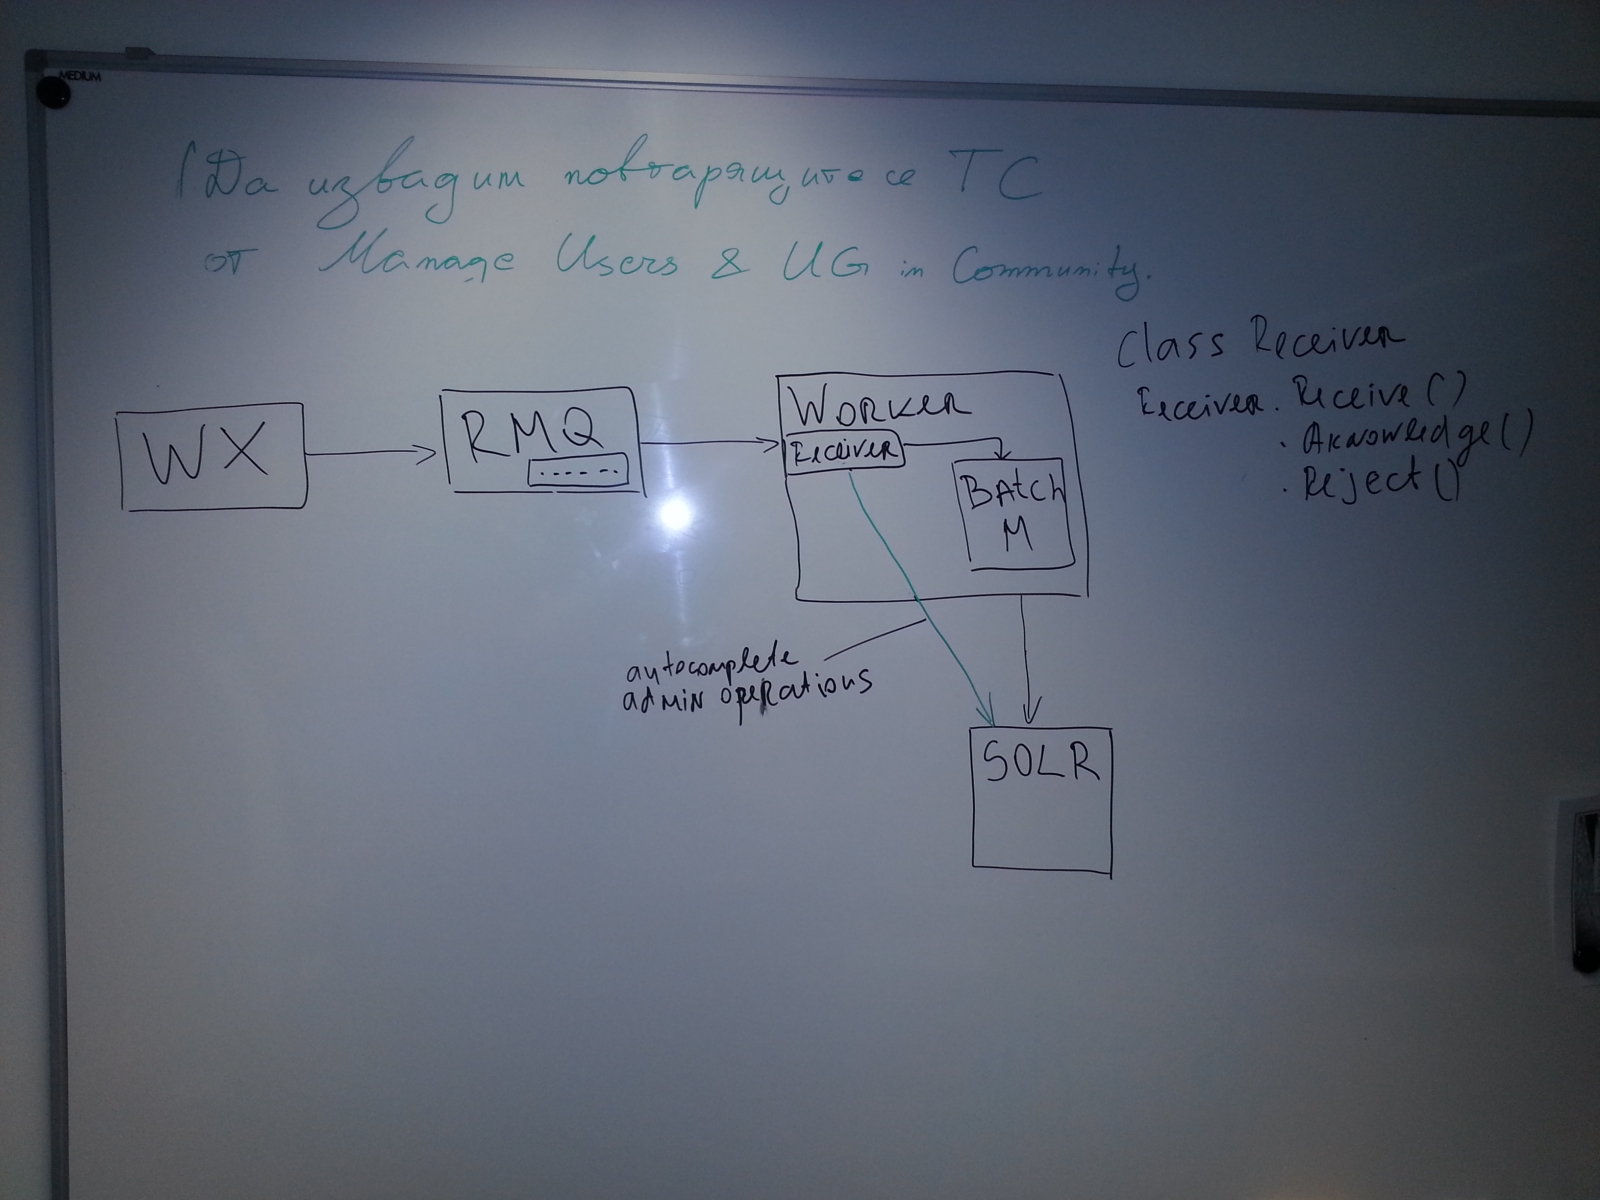 MEDIUM
Да извадим повтарящите се ТС
от Manage Users & UG in Community.
Class Receiver
Receiver. Receive()
. Aknowledge()
. Reject()
WX
RMQ
Worker
Receiver
Batch
M
autocomplete
admin operations
SOLR